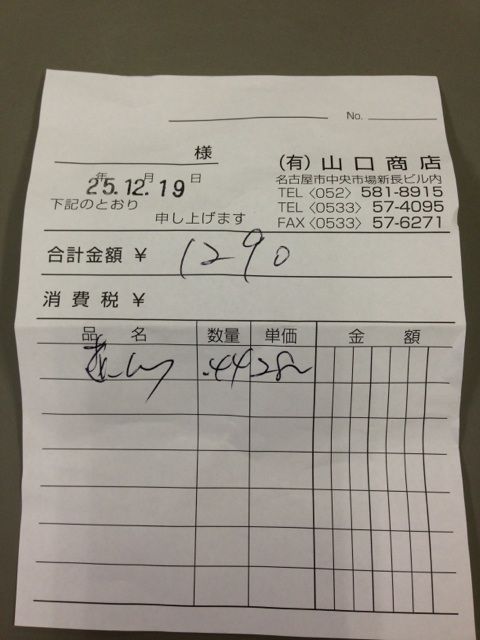 No.
様
(有) 山口商店
名古屋市中央市場新長ビル内
TEL〈052〉 581-8915
TEL〈0533〉 57-4095
FAX〈0533〉 57-6271
年 月 日
25.12.19
下記のとおり
申し上げます
合計金額 ¥ 1290
消費税 ¥
品名 数量 単価 金額
.44